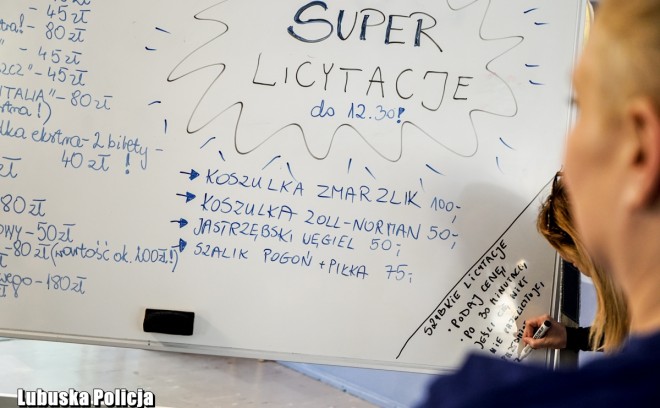 - 45 zł
tra! - 80 zł
- 45 zł
SZCZ" - 45 zł
ITALIA" - 80 zł
tra!)
dka ekstra - 2 bilety -
40 zł !
zł
80 zł
OWY - 50 zł
- 80 zł (wartość ok. 200 zł!)
wego - 180 zł
SUPER
LICYTACJE
do 12.30!
→ KOSZULKA ZMARZLIK 100,-
→ KOSZULKA ZOLL-NORMAN 50,-
→ JASTRZĘBSKI WĘGIEL 50,-
→ SZALIK POGOŃ + PIŁKA 75,-
SZYBKIE LICYTACJE
• PODAJ CENĘ,
• PO 30 MINUTACH,
JEŚLI CIĘ NIKT
NIE PRZELICYTUJE,
Lubuska Policja